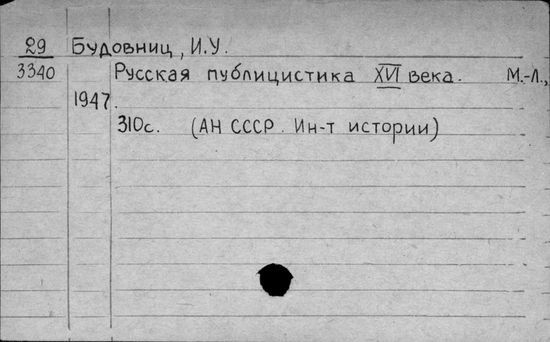 29 Будовниц, И.У.
3340 Русская публицистика XVI века. М.-Л.,
1947.
310с. (АН СССР. Ин-т истории)